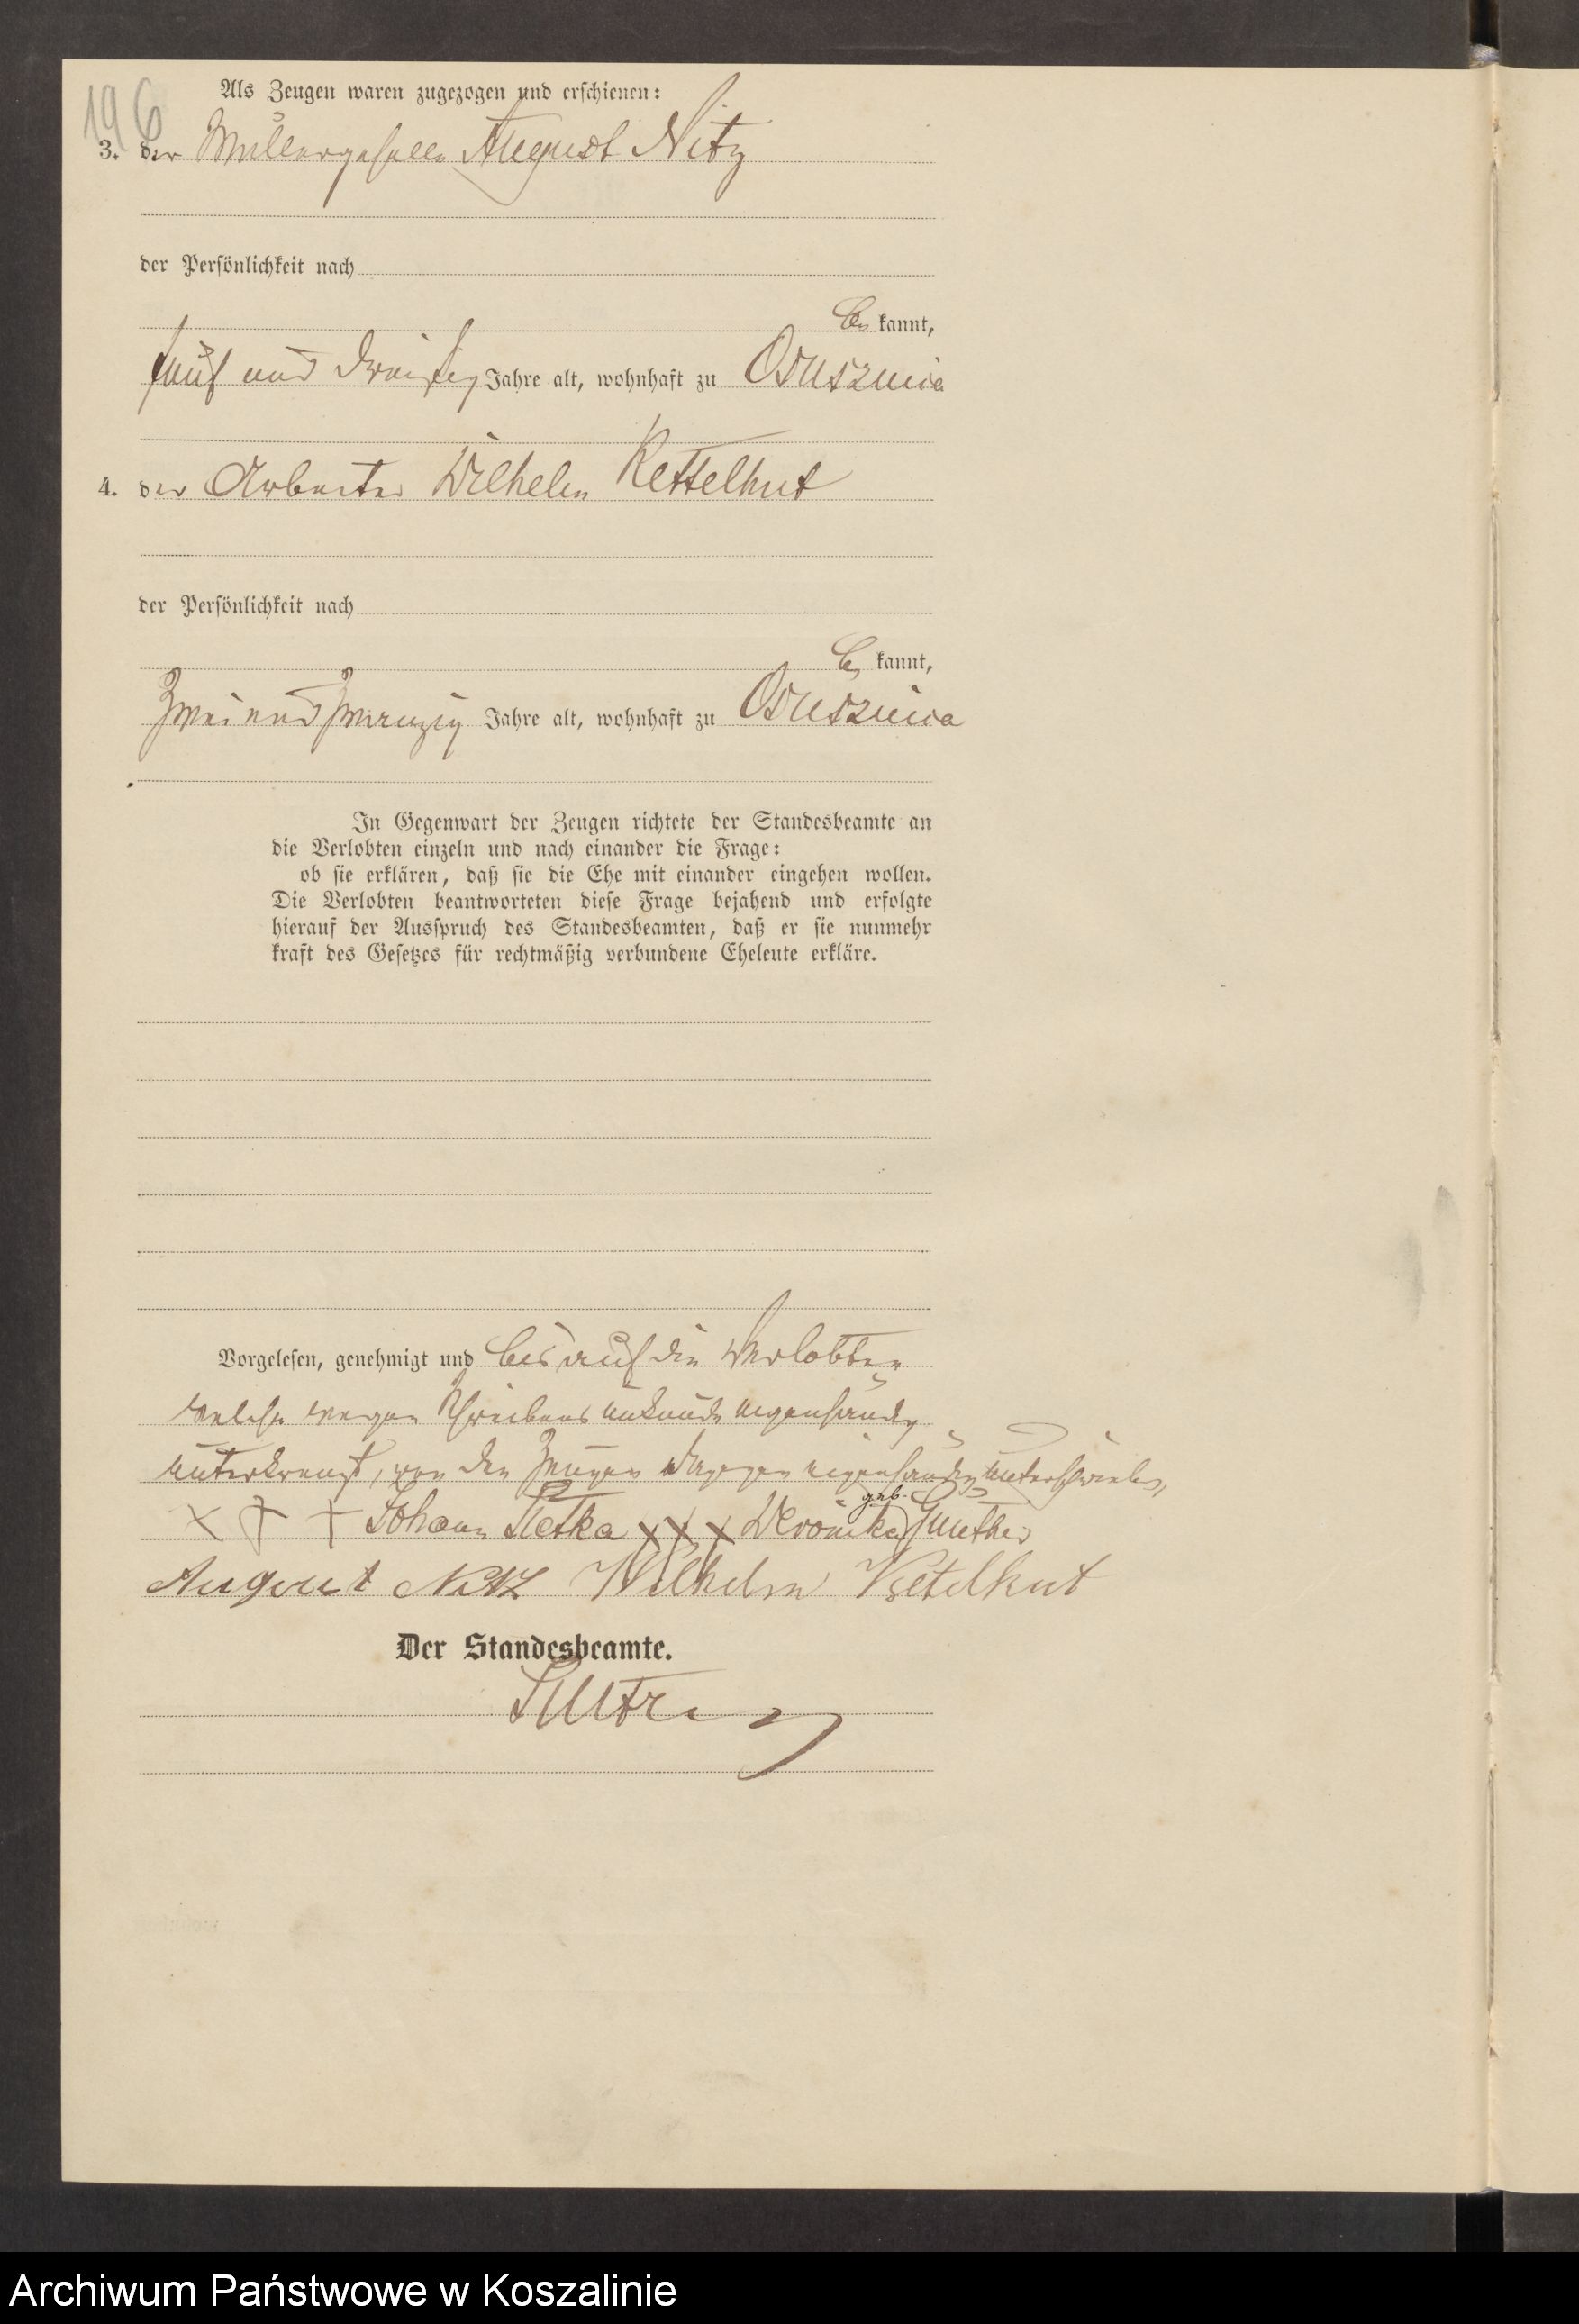 196
Als Zeugen waren zugezogen und erschienen:
3. der Müllergeselle August Nitz
der Persönlichkeit nach
be kannt,
fünf und dreißig Jahre alt, wohnhaft zu Osusznica
4. der Arbeiter Wilhelm Kettelhut
der Persönlichkeit nach
be kannt,
zwei und zwanzig Jahre alt, wohnhaft zu Osusznica
In Gegenwart der Zeugen richtete der Standesbeamte an
die Verlobten einzeln und nach einander die Frage:
ob sie erklären, daß sie die Ehe mit einander eingehen wollen.
Die Verlobten beantworteten diese Frage bejahend und erfolgte
hierauf der Ausspruch des Standesbeamten, daß er sie nunmehr
kraft des Gesetzes für rechtmäßig verbundene Eheleute erkläre.
Vorgelesen, genehmigt und bis auf die Verlobten
welche wegen Schreibens unkunde eigenhändig
unterkreuzt, von den Zeugen dagegen eigenhändig unterschrieben,
+ + + Johann + + + Veronika geb. Günther
August Nitz Wilhelm Ketelhut
Der Standesbeamte.